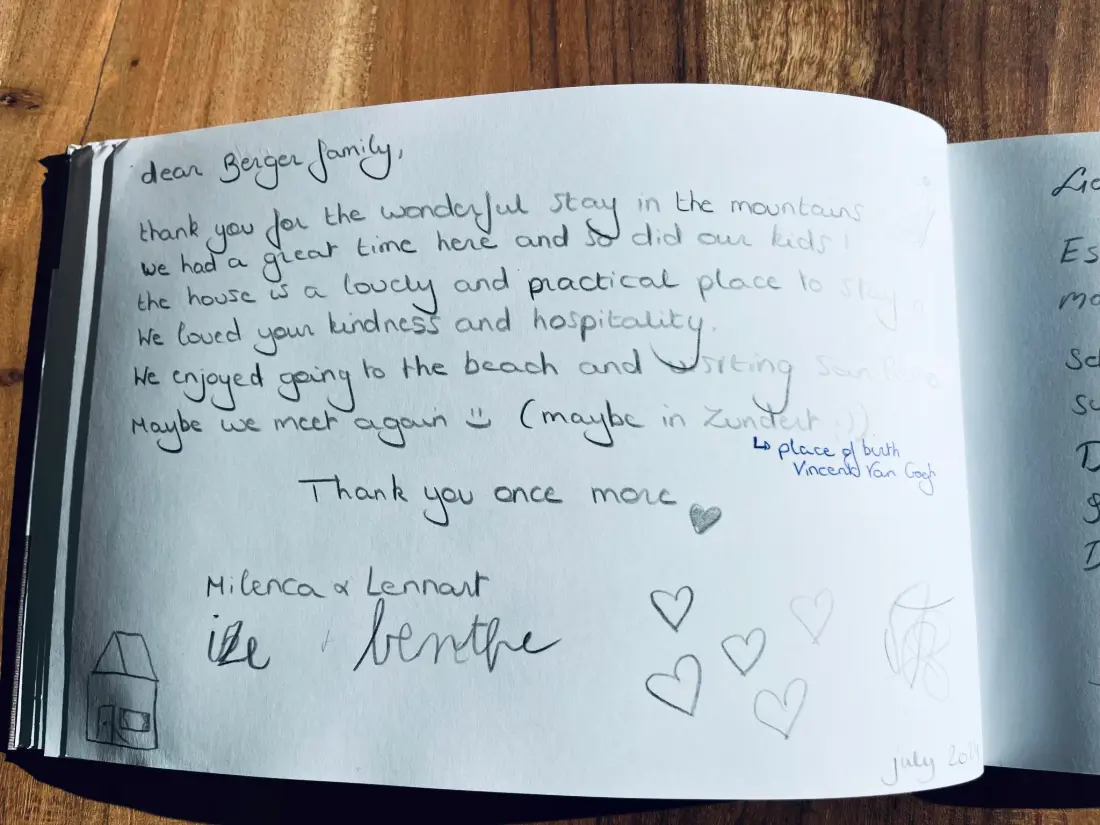 dear Berger family,
thank you for the wonderful stay in the mountains
we had a great time here and so did our kids!
the house is a lovely and practical place to stay
We loved your kindness and hospitality.
We enjoyed going to the beach and visiting
Maybe we meet again :) (maybe in Zundert :))
↳ place of birth
Vincent Van Gogh
Thank you once more ♥
Milenca & Lennart
+ benthe
july
Es